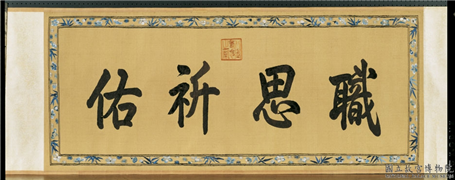 職思祈佑
國立故宮博物院